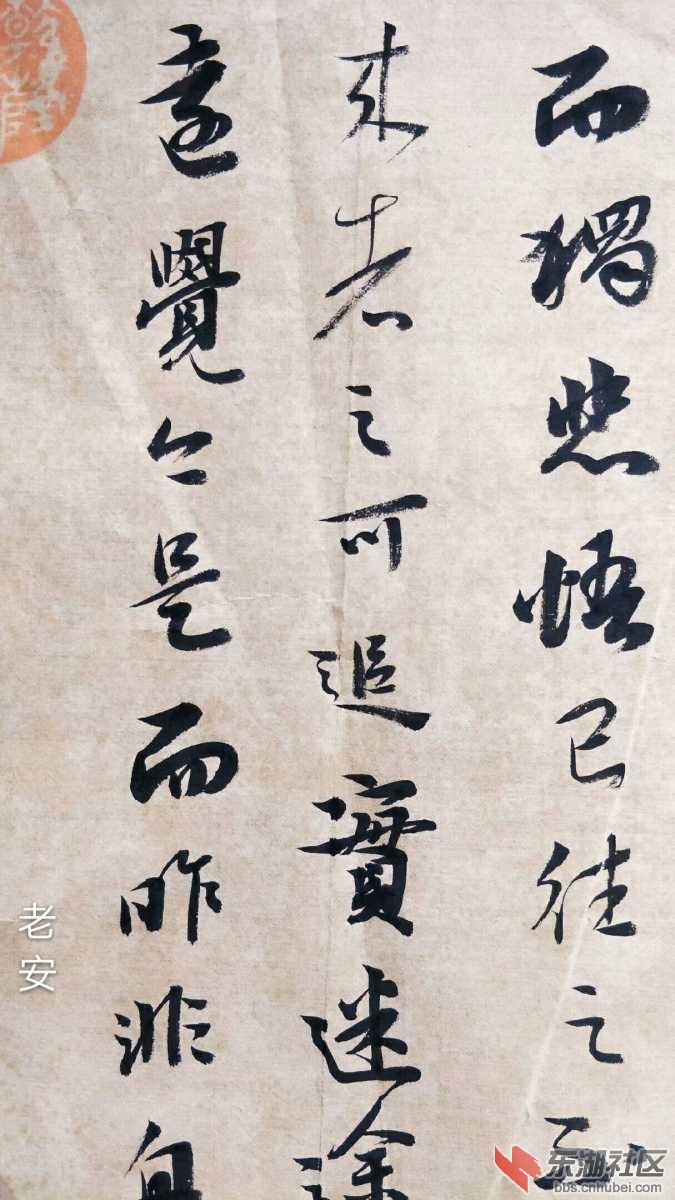 而獨悲悟已往之不
来者之可追實迷途
遠覺今是而昨非
老安
东湖社区
bbs.cnhubei.com